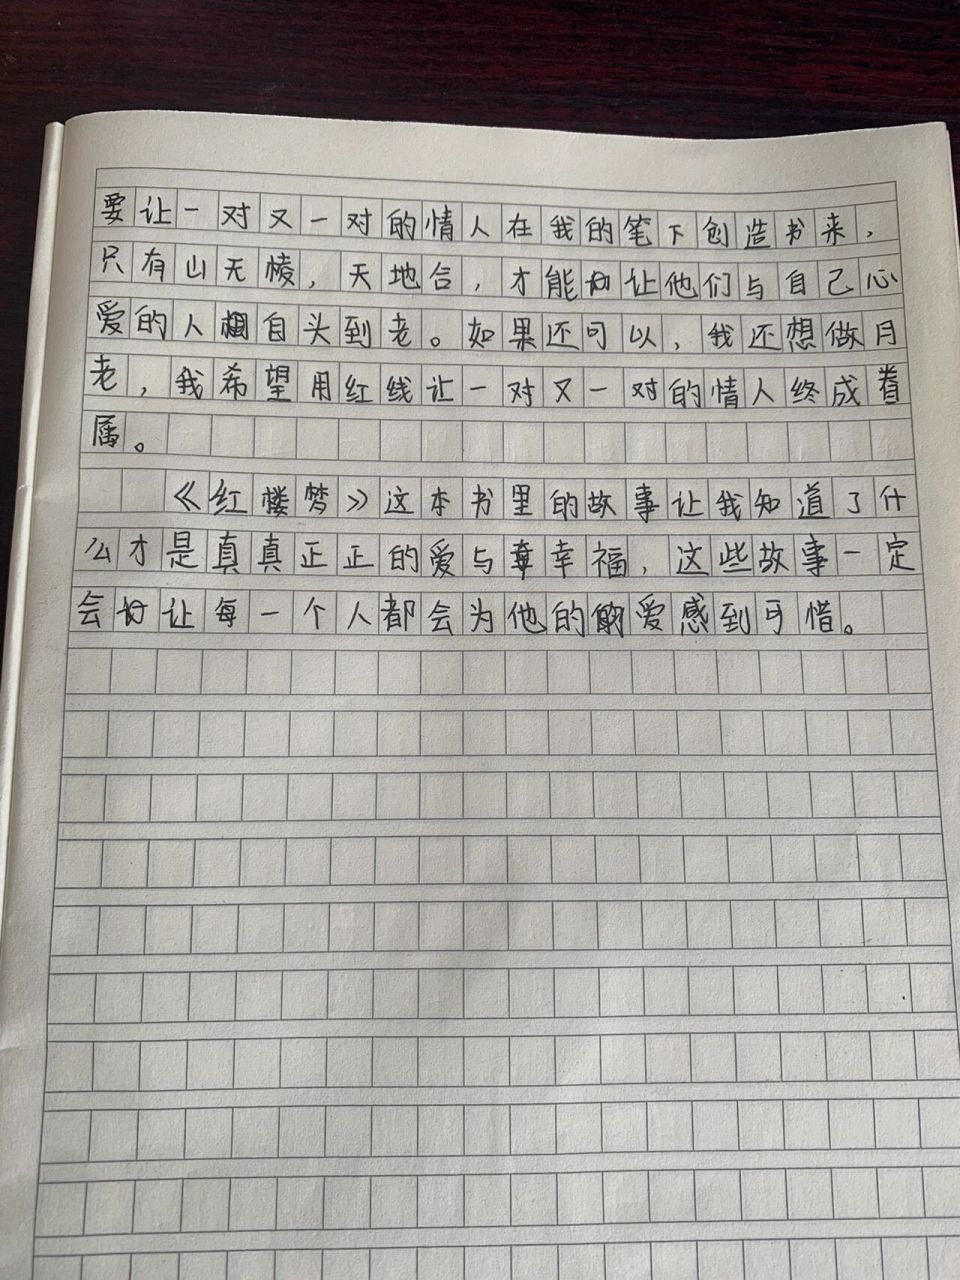 要让一对又一对的情人在我的笔下创造书来，
只有山无棱，天地合，才能让他们与自己心
爱的人相自头到老。如果还可以，我还想做月
老，我希望用红线让一对又一对的情人终成眷
属。
《红楼梦》这本书里的故事让我知道了什
么才是真真正正的爱与幸福，这些故事一定
会让每一个人都会为他的爱感到可惜。